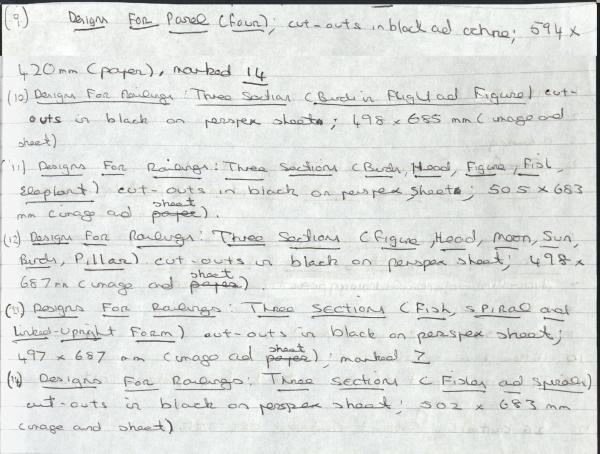 (9) Designs For Panel (four); cut-outs in black ad ochre; 594 x
420mm (paper), marked 14
(10) Designs For Railings: Three Sections (Birds in Flight ad Figure) cut-
outs in black on perspex sheet; 498 x 685 mm (image and
sheet)
(11) Designs For Railings: Three Sections (Birds, Head, Figure, Fish,
Elephant) cut-outs in black on perspex sheet; 505 x 683
mm (image ad paper sheet).
(12) Designs For Railings: Three Sections (Figure, Head, Moon, Sun,
Birds, Pillar) cut-outs in black on perspex sheet; 498 x
687mm (image ad paper sheet).
Designs For Railings: Three Sections (Fish, Spiral and
Linked-Upright Form) cut-outs in black on perspex sheet;
497 x 687 mm (image ad paper sheet); marked 7
Designs For Railings: Three Sections (Fishes ad Spirals)
cut-outs in black on perspex sheet; 502 x 683 mm
(image and sheet)